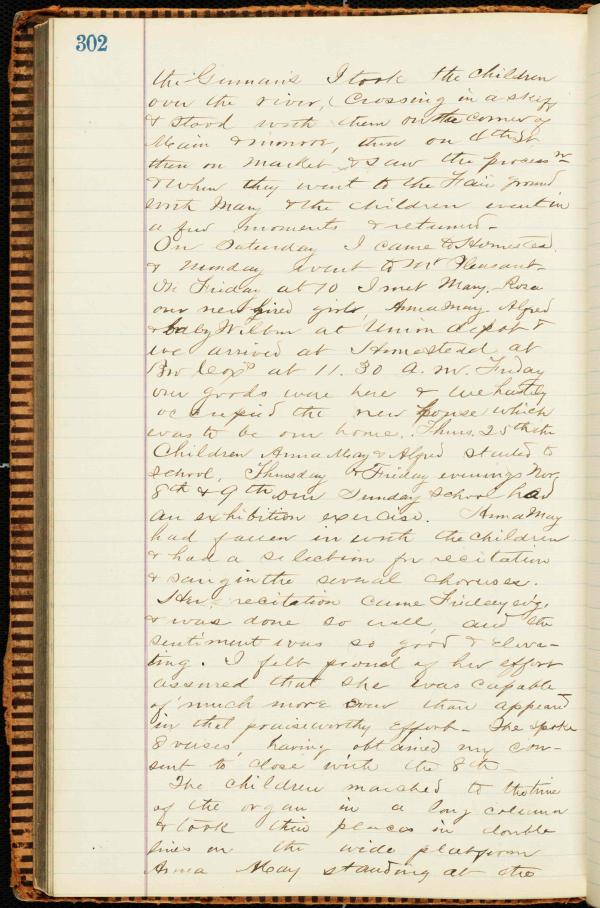 302
the Germans I took the children
over the river, (crossing in a skiff
& stood with them on the corner of
Main & Monroe, then on 4th St
then on Market & saw the process n
& when they went to the Fair ground
with Mary & the children went in
a few moments & returned -
On Saturday I came to Homestead
& Monday went to Mt Pleasant -
On Friday at 10 I met Mary, Rosa
our new hired girl, Anna May Alfred
& baby Wilbur at Union depot &
we arrived at Homestead at
at 11.30 A.M. Friday
our goods were here & we hastily
occupied the new house which
was to be our home. Thurs. 25th the
Children Anna May & Alfred started to
School, Thursday & Friday evenings Nov
8th & 9th our Sunday School had
an exhibition exercise. Anna May
had fallen in with the children
& had a selection for recitation
& sang in the several choruses.
Her recitation came Friday ev'g,
& was done so well, and the
sentiment was so good & eleva-
ting. I felt proud of her effort
assured that she was capable
of much more even than appeared
in that praiseworthy effort - She spoke
8 verses, having obtained my con-
sent to close with the 8th -
The children marched to the time
of the organ in a long column
& took their places in double
lines on the wide platform
Anna May standing at the